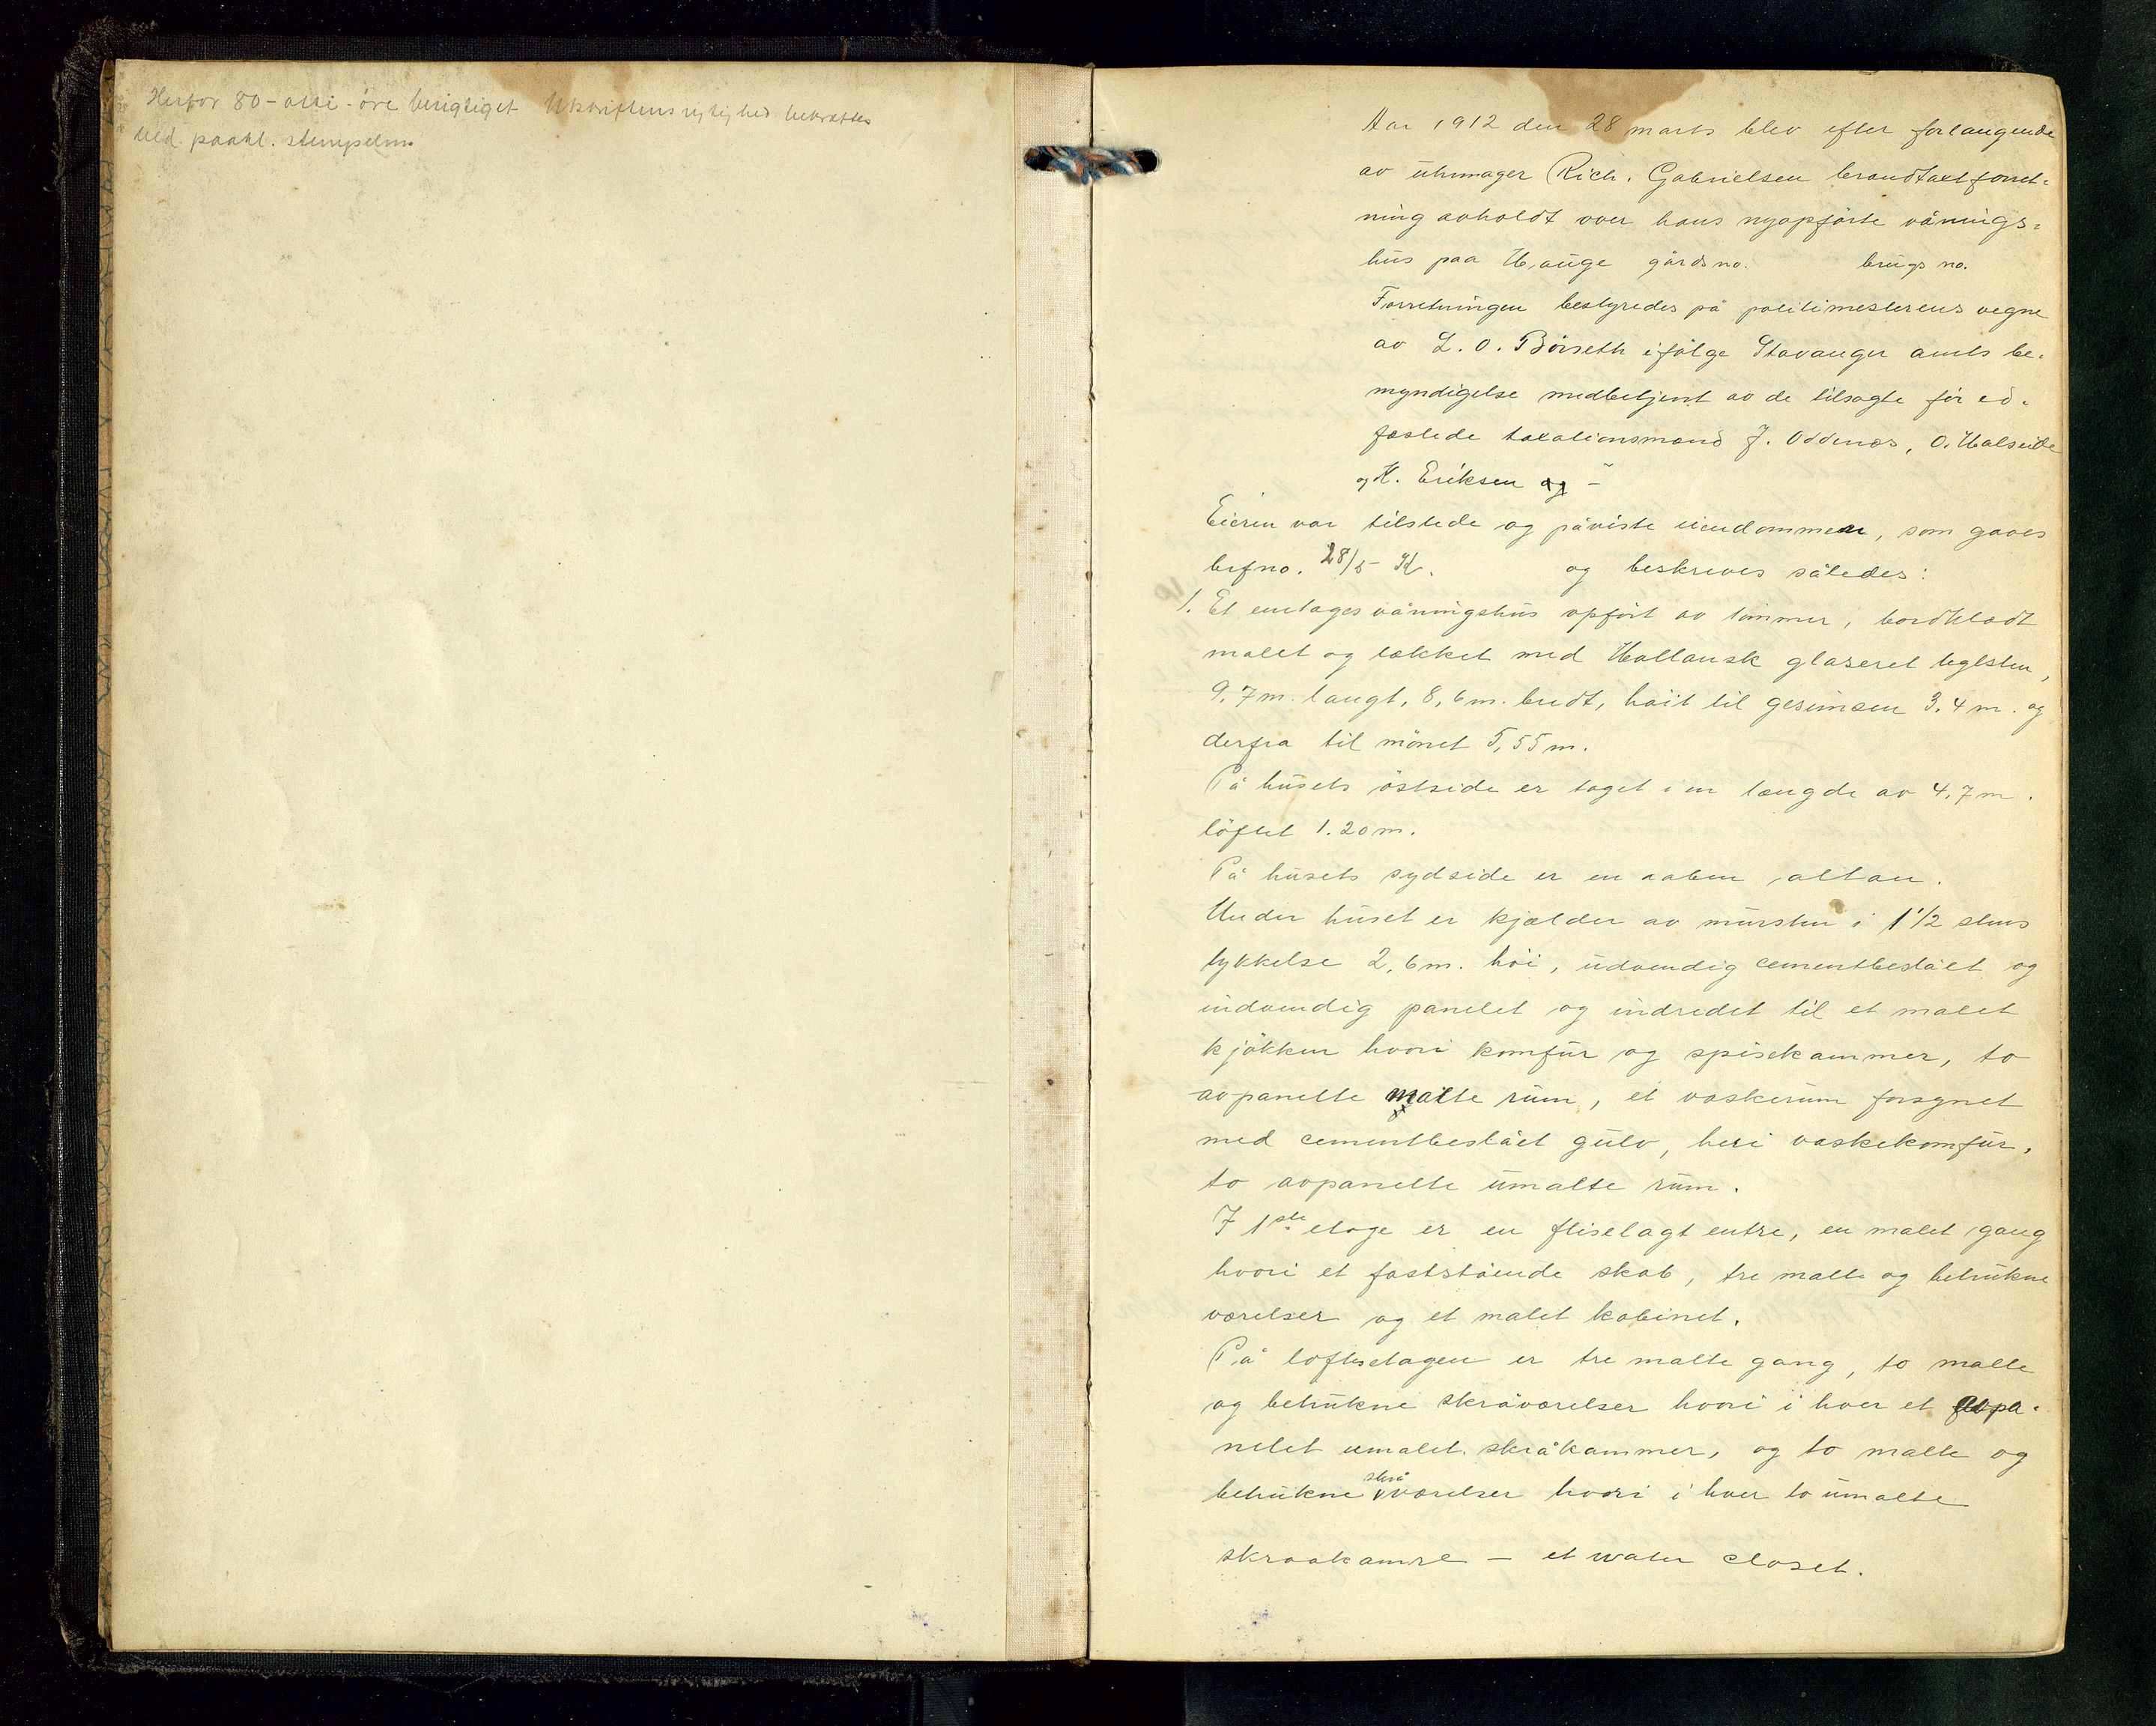 Herfor 80 - otti - öre berigtiget Utskriftens rigtighed bekræftes
Uld. paakl. stempelm.
Aar 1912 den 28 marts blev efter forlangende
av uhrmager Rich. Gabrielsen brandtaxtforret-
ning avholdt over hans nyopförte vånings-
hus paa Hauge gårdsno. brugsno.
Forretningen bestyredes på politimesterens vegne
av L. O. Börseth ifölge Stavanger amts be-
myndigelse medbetjent av de tilsagte för ed-
fæstede taxationsmænd J. Oddenæs, O. Halseide
og H. Eriksen og -
Eieren var tilstede og påviste eiendommen, som gaves
brfno. 28/5 - K. og beskrives således:
1. Et enetages våningshus opfört av tömmer, bordklædt
malet og tækket med Hollansk glaseret teglsten,
9,7 m. langt, 8,6 m. bredt, höit til gesimsen 3,4 m. og
derfra til mönet 5,55 m.
På husets östside er taget i en længde av 4,7 m.
löftet 1.20 m.
På husets sydside er en aaben altan.
Under huset er kjælder av mursten i 1 1/2 stens
tykkelse 2,6 m. höi, udvendig cementbeslået og
indvendig panelet og indredet til et malet
kjökken hvori komfur og spisekammer, to
avpanelte malte rum, et vaskerum forsynet
med cementbeslået gulv, heri vaskekomfur,
to avpanelte umalte rum.
I 1ste etage er en fliselagt entre, en malet gang
hvori et faststående skab, tre malte og betrukne
værelser og et malet kabinet.
På loftsetagen er tre malte gang, to malte
og betrukne skråværelser hvori i hver et avpa-
nelet umalet skråkammer, og to malte og
betrukne skråværelser hvori i hver to umalte
skraakamre - et water closet.